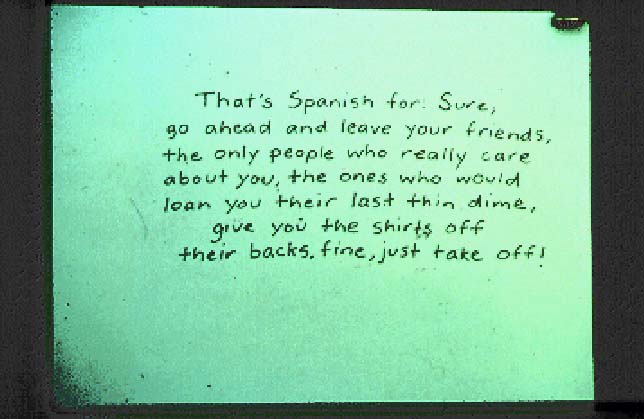 That's Spanish for: Sure,
go ahead and leave your friends,
the only people who really care
about you, the ones who would
loan you their last thin dime,
give you the shirts off
their backs. fine, just take off!